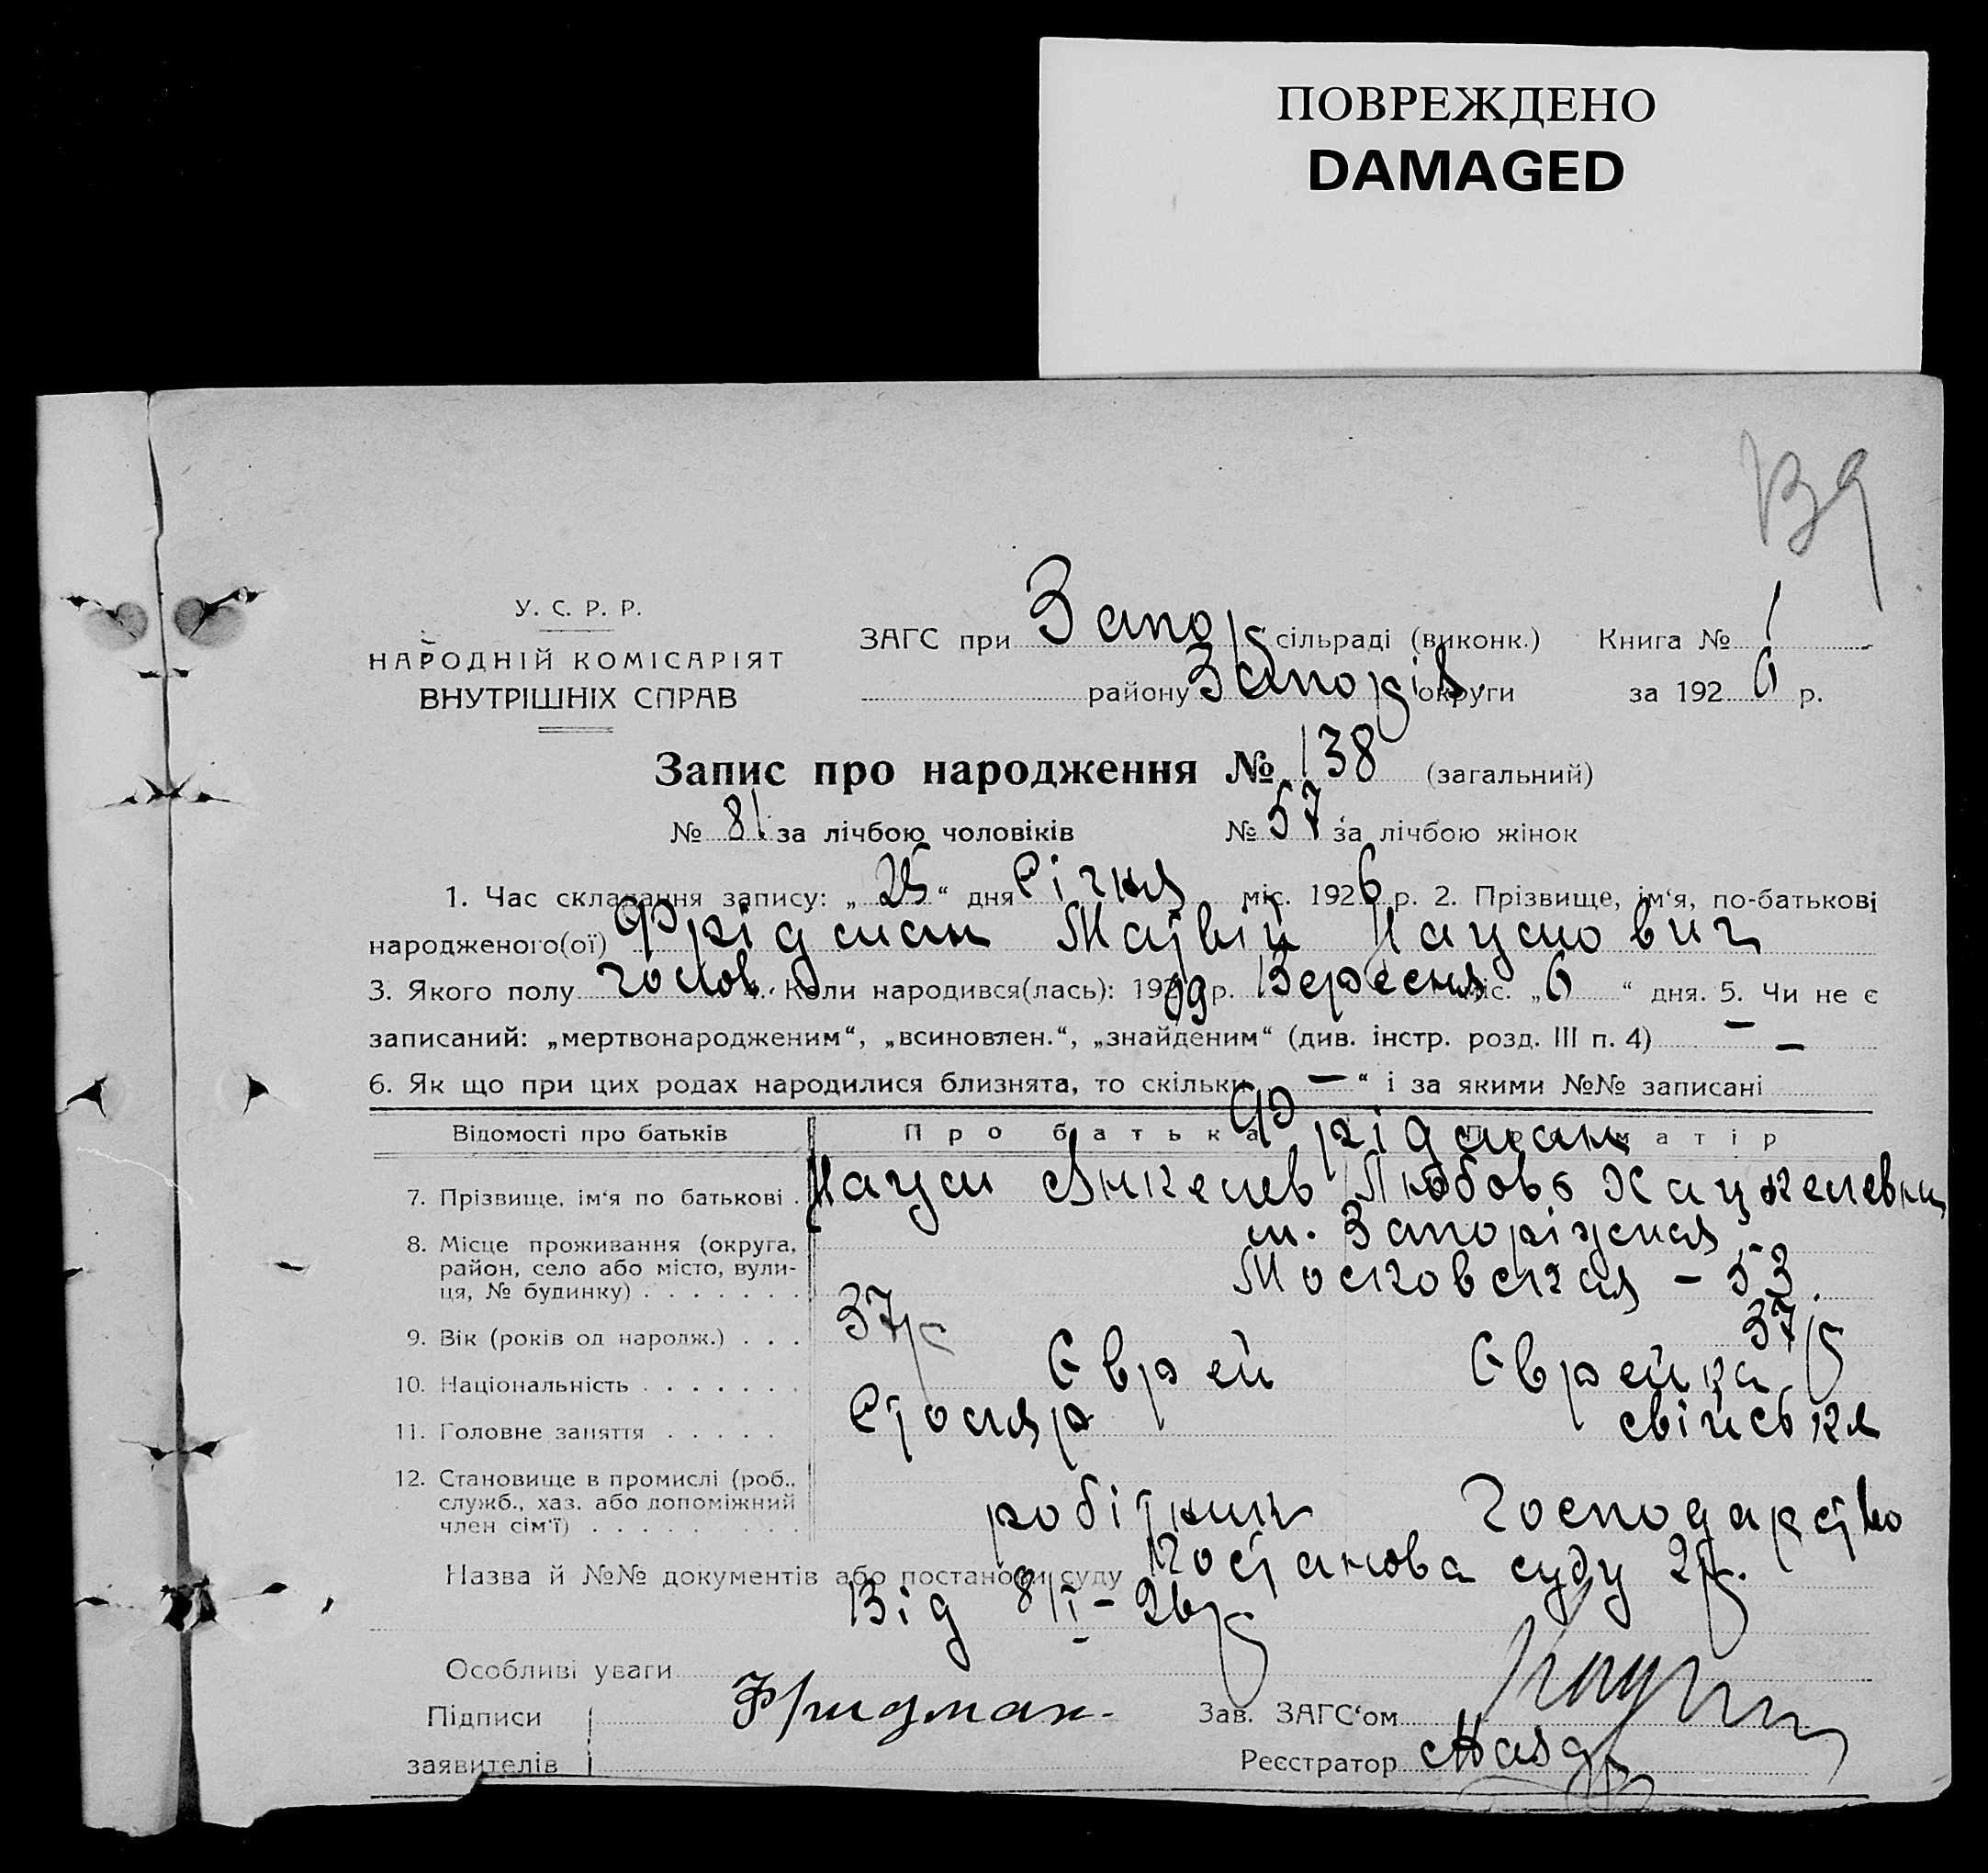 ПОВРЕЖДЕНО
DAMAGED
У. С. Р. Р.
НАРОДНІЙ КОМІСАРІЯТ
ВНУТРІШНІХ СПРАВ
ЗАГС при Запор сільраді (виконк.) Книга № 1
району Запорів округи за 1926 р.
Запис про народження № 138 (загальний)
№ 81 за лічбою чоловіків № 57 за лічбою жінок
1. Час складання запису: „25“ дня Січня міс. 1926 р. 2. Прізвище, ім‘я, по-батькові
народженого(ої) Фрідман Матвій Наумович
3. Якого полу чолов. 4. Коли народився(лась): 1909 р. Вересня міс. „6“ дня. 5. Чи не є
записаний: „мертвонародженим“, „всиновлен.“, „знайденим“ (див. інстр. розд. III п. 4) — —
6. Як що при цих родах народилися близнята, то скільки — “ і за якими №№ записані
Відомості про батьків Про батька Про матір
Фрідман
7. Прізвище, ім‘я по батькові Наум Янкелев Любовь Хацкелевна
8. Місце проживання (округа, район, село або місто, вулиця, № будинку) м. Запоріжжя
Московская – 53.
9. Вік (років од народж.) 37р 37р
10. Національність Єврей Єврейка
11. Головне заняття Столяр свійське
12. Становище в промислі (роб., служб., хаз. або допоміжний член сім‘ї) робітник Господарство
Назва й №№ документів або постанови суду Постанова суду 2р.
Від 8/I – 26р
Особливі уваги
Підписи Фридман. Зав. ЗАГС‘ом
заявителів Реєстратор